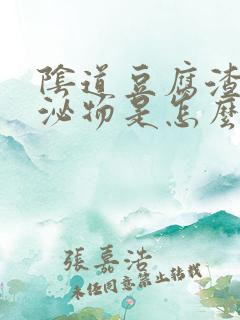 陰道豆腐渣
泌物是怎麼
張嘉浩
未经同意禁止转载